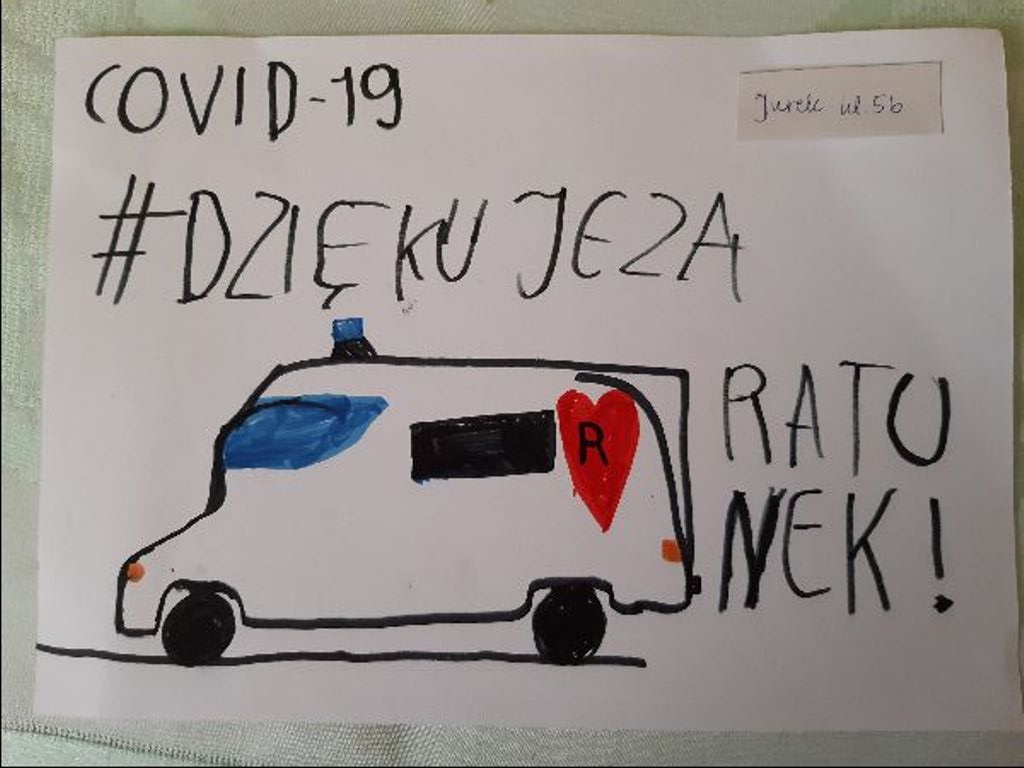 COVID-19
Jurek ul. 5b
#DZIĘKUJEZA
R
RATU
NEK!